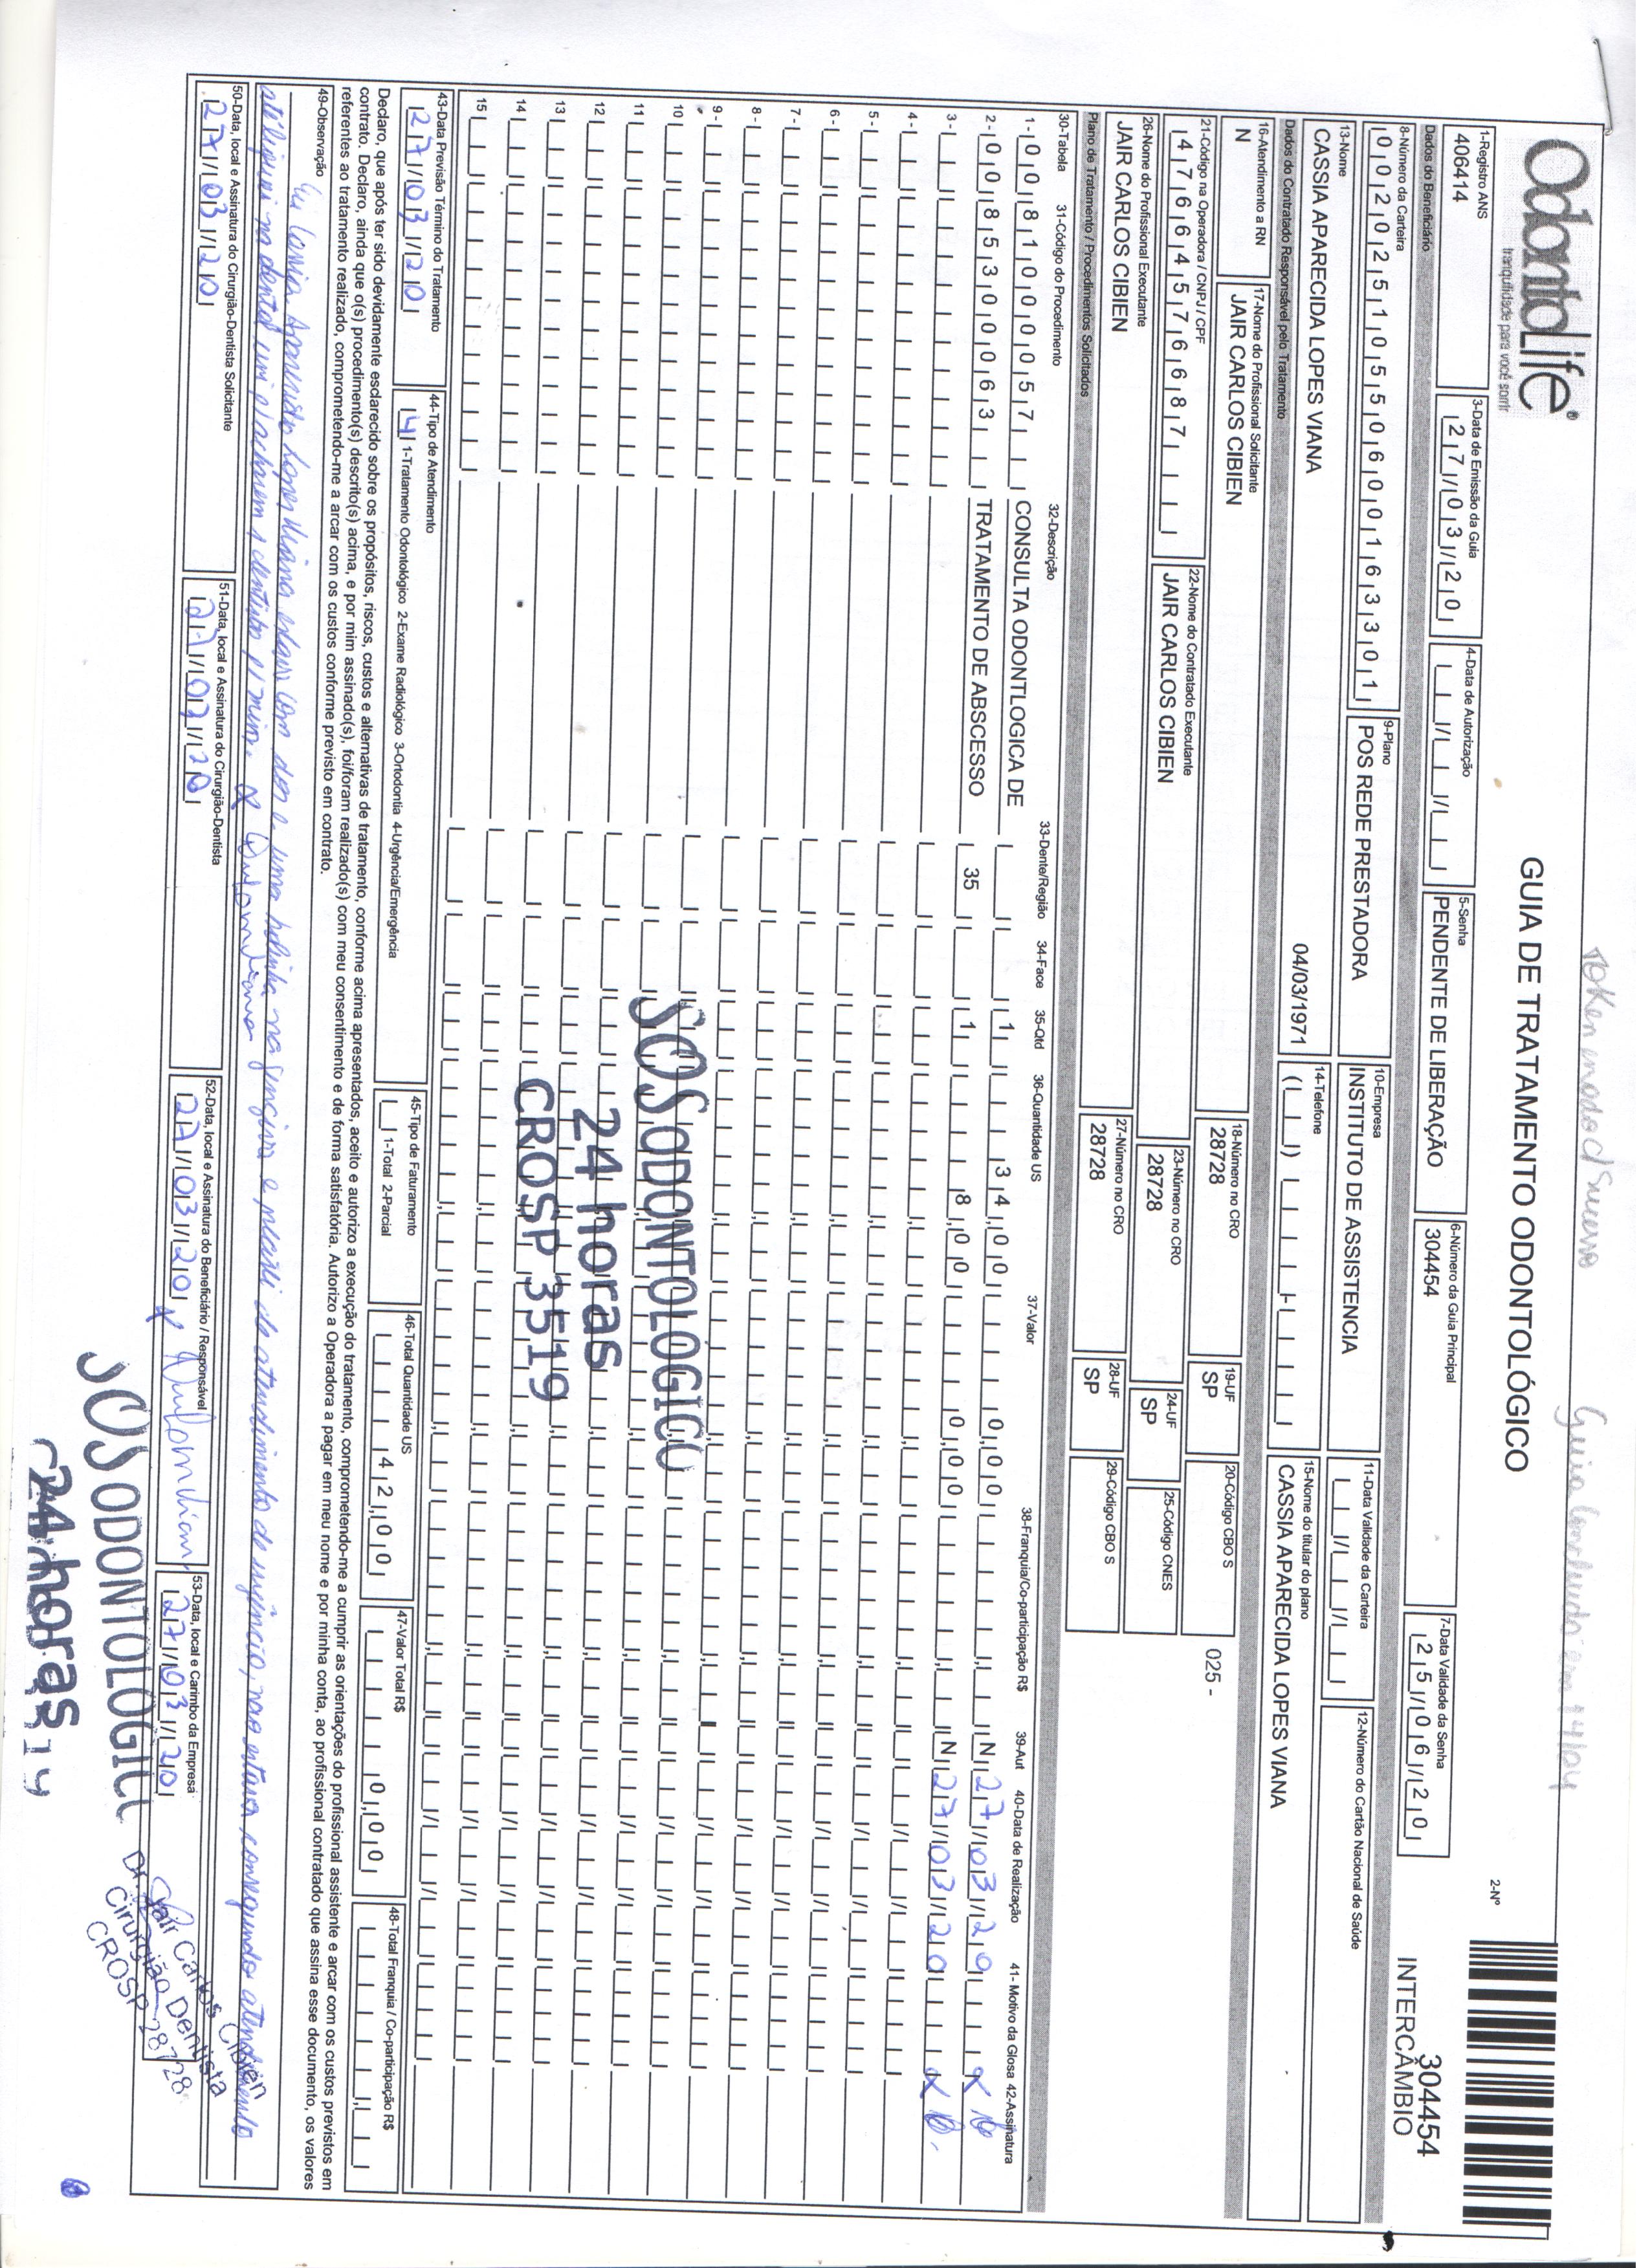 token enviado c/ Sucesso
Guia Concluida em 14/04
OdontoLife®
tranquilidade para você sorrir
GUIA DE TRATAMENTO ODONTOLÓGICO
2-Nº
304454
INTERCÂMBIO
1-Registro ANS
406414
3-Data de Emissão da Guia
27/03/20
4-Data de Autorização
5-Senha
PENDENTE DE LIBERAÇÃO
6-Número da Guia Principal
304454
7-Data Validade da Senha
25/06/20
Dados do Beneficiário
8-Número da Carteira
00202510550600163301
9-Plano
POS REDE PRESTADORA
10-Empresa
INSTITUTO DE ASSISTENCIA
11-Data Validade da Carteira
12-Número do Cartão Nacional de Saúde
13-Nome
CASSIA APARECIDA LOPES VIANA
04/03/1971
14-Telefone
15-Nome do titular do plano
CASSIA APARECIDA LOPES VIANA
Dados do Contratado Responsável pelo Tratamento
16-Atendimento a RN
N
17-Nome do Profissional Solicitante
JAIR CARLOS CIBIEN
18-Número no CRO
28728
19-UF
SP
20-Código CBO S
025 -
21-Código na Operadora / CNPJ / CPF
47664576687
22-Nome do Contratado Executante
JAIR CARLOS CIBIEN
23-Número no CRO
28728
24-UF
SP
25-Código CNES
26-Nome do Profissional Executante
JAIR CARLOS CIBIEN
27-Número no CRO
28728
28-UF
SP
29-Código CBO S
Plano de Tratamento / Procedimentos Solicitados
30-Tabela 31-Código do Procedimento 32-Descrição 33-Dente/Região 34-Face 35-Qtd 36-Quantidade US 37-Valor 38-Franquia/Co-participação R$ 39-Aut 40-Data de Realização 41- Motivo da Glosa 42-Assinatura
1- 00 81000057 CONSULTA ODONTLOGICA DE 1 34,00 0,00 N 27/03/20
2- 00 85300063 TRATAMENTO DE ABSCESSO 35 1 8,00 0,00 N 27/03/20
3-
4-
5-
6-
7-
8-
9-
10
11
12
13
14
15
SOS ODONTOLOGICO
24 horas
CROSP 3519
43-Data Previsão Término do Tratamento
27/03/20
44-Tipo de Atendimento
4 1-Tratamento Odontológico 2-Exame Radiológico 3-Ortodontia 4-Urgência/Emergência
45-Tipo de Faturamento
1-Total 2-Parcial
46-Total Quantidade US
42,00
47-Valor Total R$
0,00
48-Total Franquia / Co-participação R$
Declaro, que após ter sido devidamente esclarecido sobre os propósitos, riscos, custos e alternativas de tratamento, conforme acima apresentados, aceito e autorizo a execução do tratamento, comprometendo-me a cumprir as orientações do profissional assistente e arcar com os custos previstos em
contrato. Declaro, ainda que o(s) procedimento(s) descrito(s) acima, e por mim assinado(s), foi/foram realizado(s) com meu consentimento e de forma satisfatória. Autorizo a Operadora a pagar em meu nome e por minha conta, ao profissional contratado que assina esse documento, os valores
referentes ao tratamento realizado, comprometendo-me a arcar com os custos conforme previsto em contrato.
49-Observação
Eu Cassia Aparecida Lopes Viana estava com dor e uma bolinha na gengiva e precisei de atendimento de urgência, não estava conseguindo atendimento
50-Data, local e Assinatura do Cirurgião-Dentista Solicitante
27/03/20
51-Data, local e Assinatura do Cirurgião-Dentista
27/03/20
52-Data, local e Assinatura do Beneficiário / Responsável
27/03/20
53-Data, local e Carimbo da Empresa
27/03/20
SOS ODONTOLOGIC
24 horas
Dr. Jair Carlos Cibien
Cirurgião Dentista
CROSP 28728